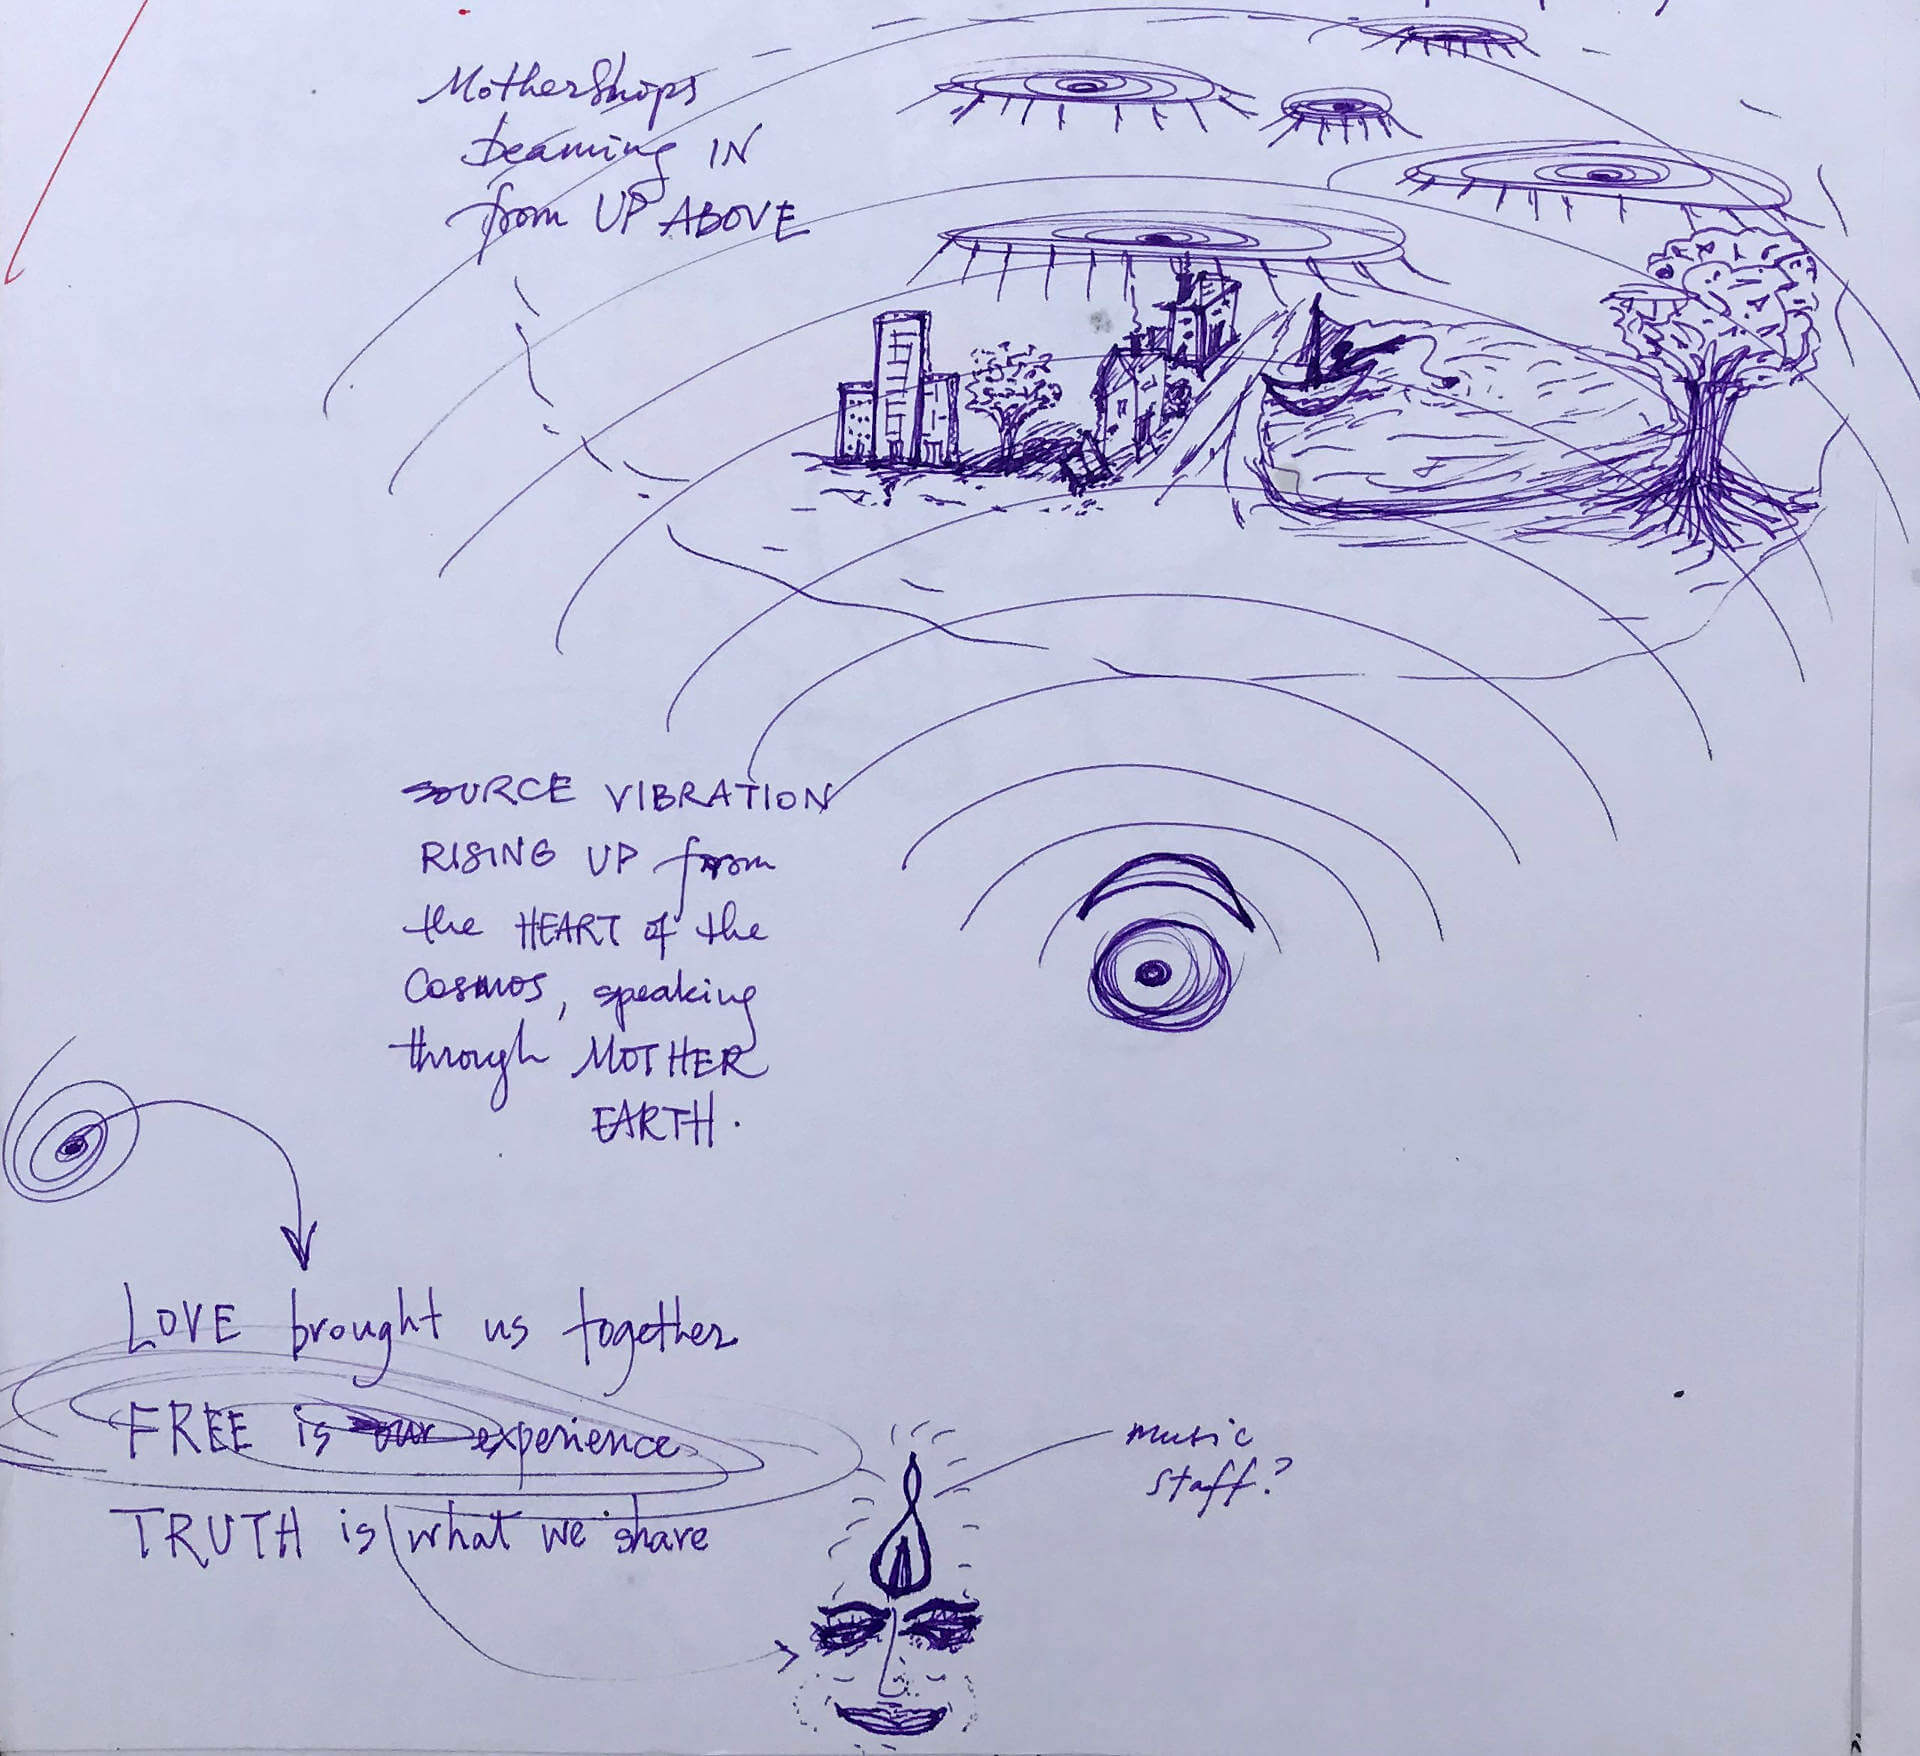 MotherShips
beaming IN
from UP ABOVE
SOURCE VIBRATION
RISING UP from
the HEART of the
Cosmos, speaking
through MOTHER
EARTH.
LOVE brought us together
FREE is our experience
TRUTH is what we share
music
staff?